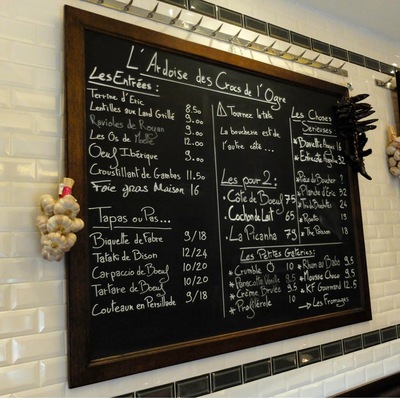 L'Ardoise des Crocs de l'Ogre
Les Entrées:
Terrine d'Eric 8.50
Lentilles aux Lard Grillé 9.00
Ravioles de Royan 9.00
Les Os de Moëlle 9.00
Oeuf Ibérique 12.00
Croustillant de Gambas 11.50
Foie gras Maison 16
Tapas ou Pas...
Biquette de Fabre 9/18
Tataki de Bison 12/24
Carpaccio de Boeuf 10/20
Tartare de Boeuf 10/20
Couteaux en Persillade 9/18
Tournez la tête
La boucherie est de
l'autre côté...
Les pour 2:
Côte de Boeuf 75
Cochon de Lait 65
La Picanha 79
Les Choses
Sérieuses
Bavette 16
Entrecôte 32
Pièce du Boucher ?
Planche d'Eric
Les Petites Gateries:
Crumble 10
Panacotta Vanille 9.5
Crème Brulée 9.5
Profiterole 10
Rhum au Baba 9.5
Mousse Choco 9.5
KF Gourmand 12.5
Les Fromages